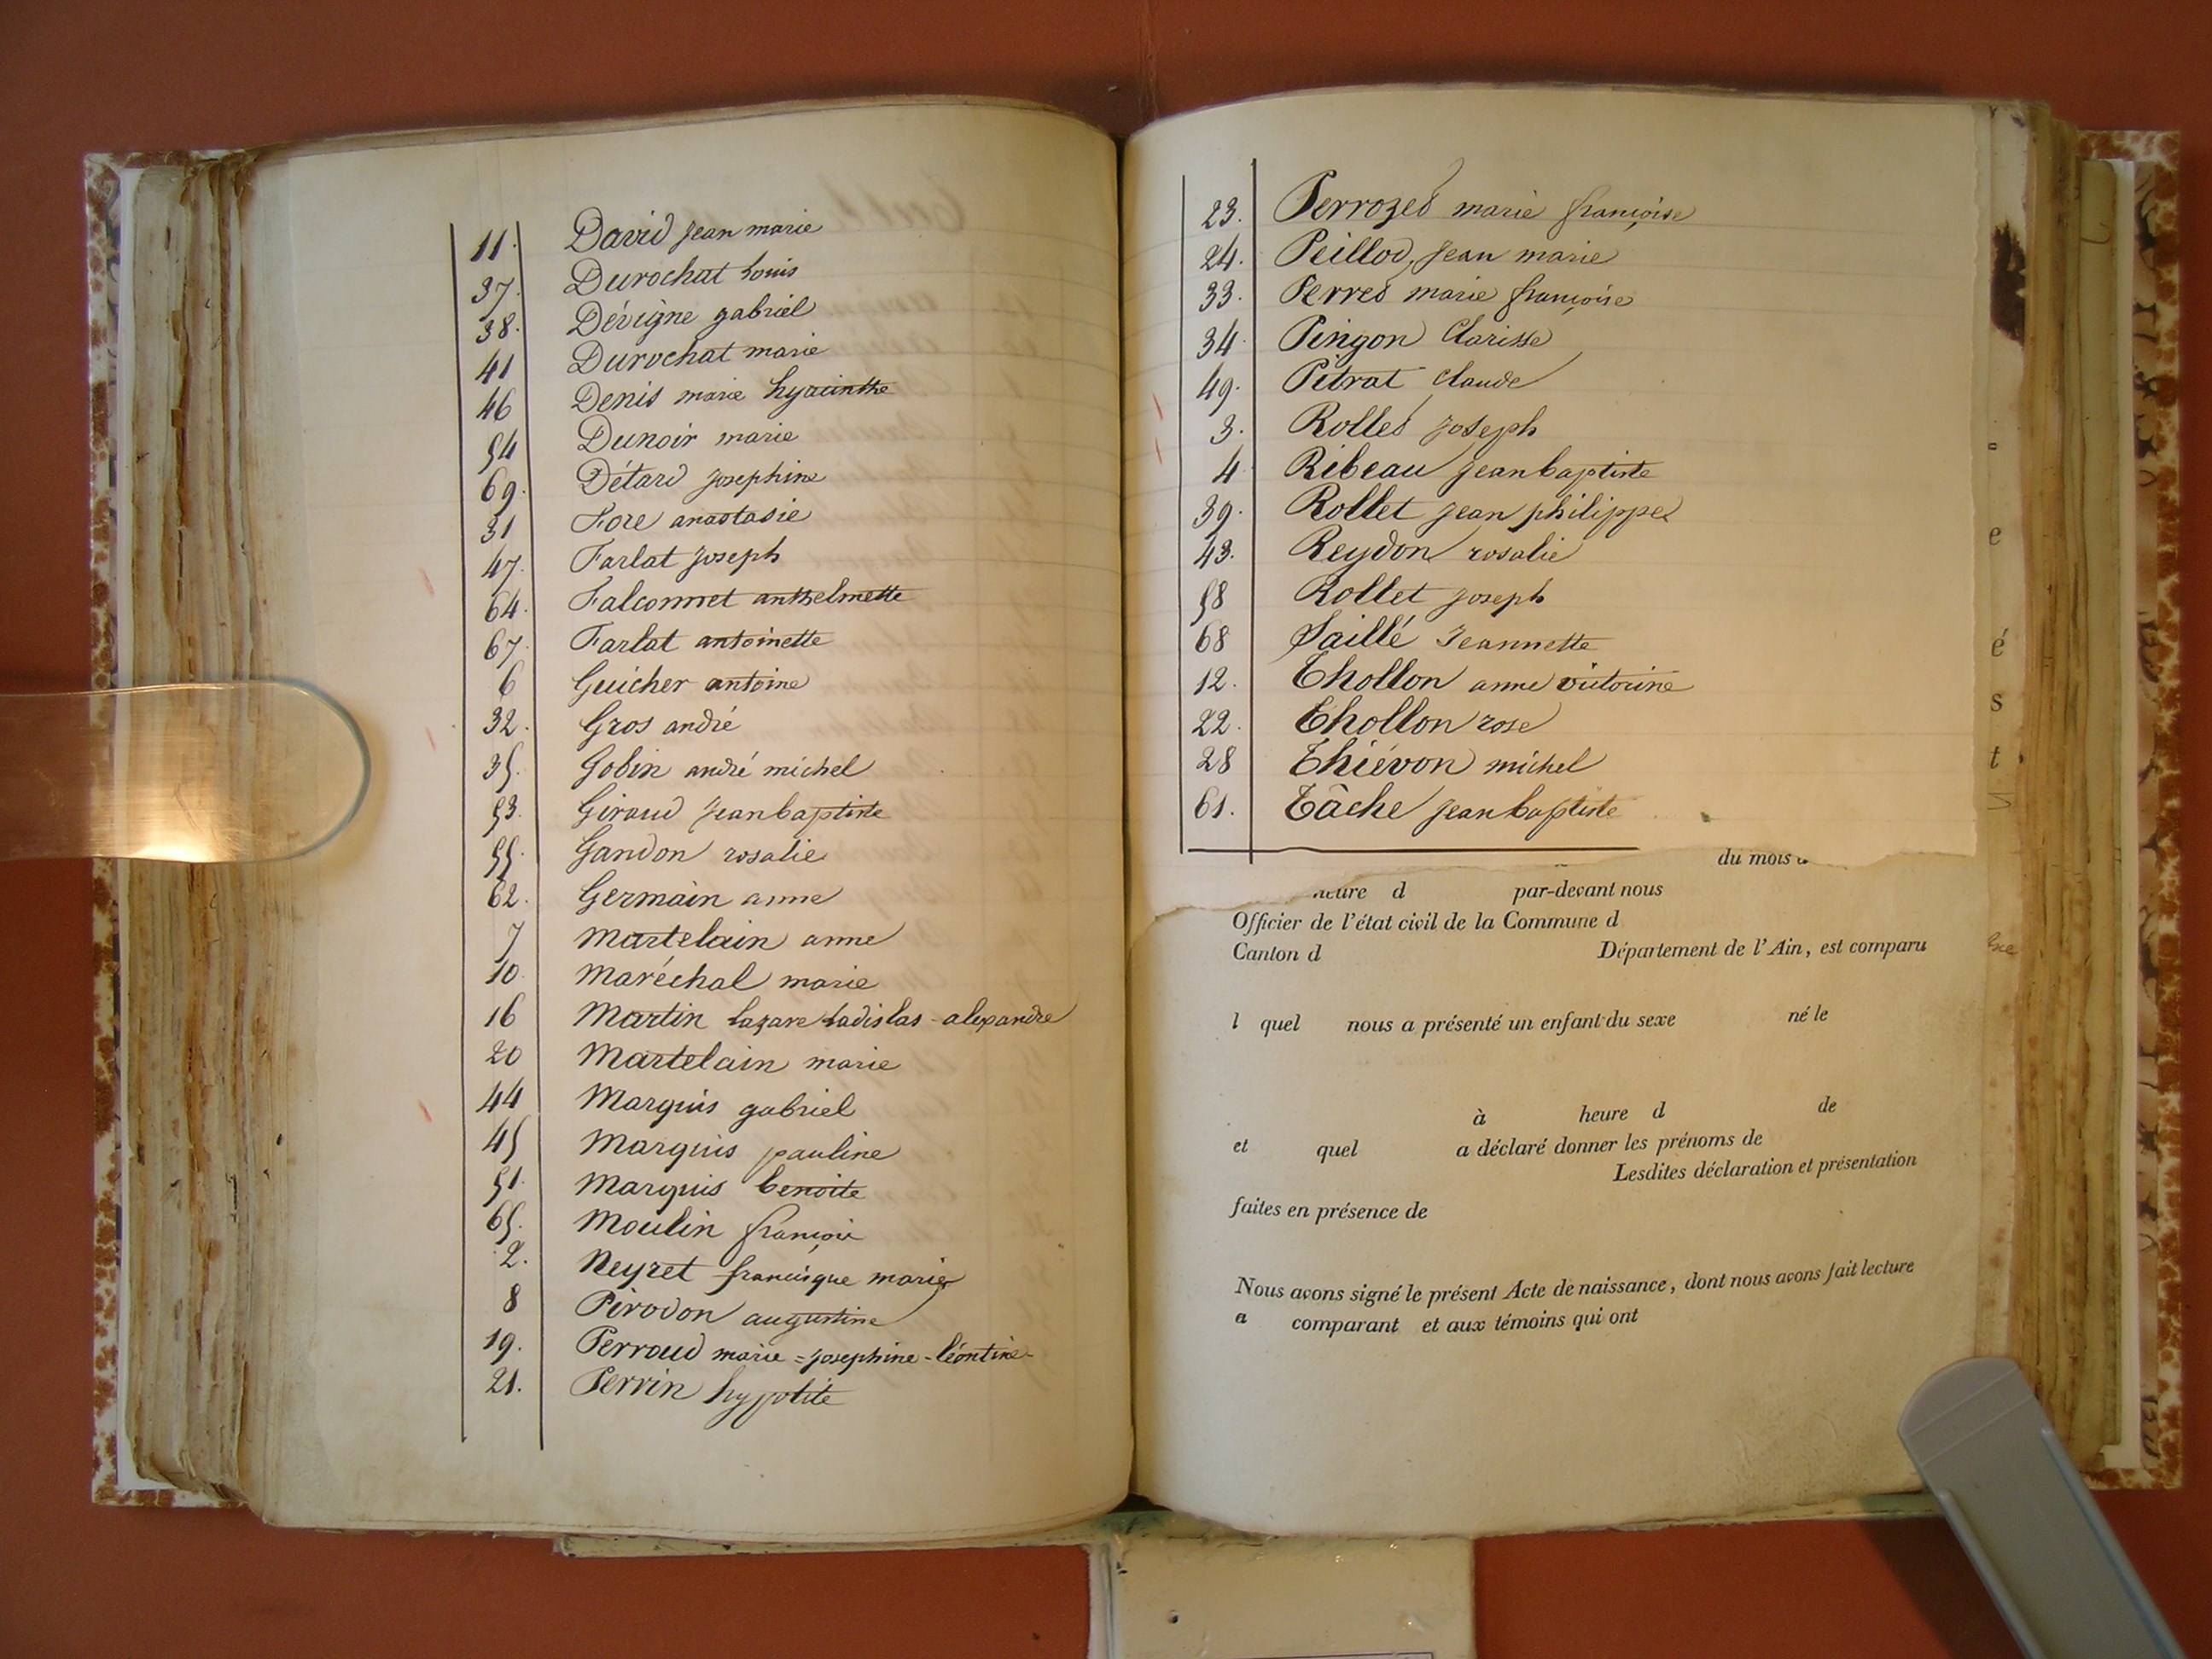 11. David jean marie
37. Durochat Louis
38. Dévigne gabriel
41 Durochat marie
46 Denis marie hyacinthe
54 Dunoir marie
69. Détard josephine
31 Fore anastasie
47. Farlat joseph
64. Falconnet anthelmette
67. Farlat antoinette
6 Guicher antoine
32. Gros andré
35. Gobin andré michel
53. Giraud jean baptiste
55. Gandon rosalie
62. Germain anne
7 Martelain anne
10. Maréchal marie
16 Martin Lazare Ladislas - alexandre
20 Martelain marie
44 Marquis gabriel
45 Marquis pauline
51. Marquis benoite
65. Moulin françois
2. Neyret francisque marie
8 Pirodon augustine
19. Perraud marie = josephine - léontine -
21. Perrin hypolite
23. Perrozed marie françoise
24. Peillod, jean marie
33. Perred marie françoise
34. Pingon Clarisse
49. Pitrat Claude
3. Rolled joseph
4 Ribeau jean baptiste
39. Rollet jean philippe
43. Reydon rosalie
58 Rollet joseph
68 Saillé Jeannette
12. Thollon anne victorine
22. Thollon rose
28 Thiévon michel
61. Tâche jean baptiste
du mois d
heure d par-devant nous
Officier de l'état civil de la Commune d
Canton d Département de l'Ain, est comparu
l quel nous a présenté un enfant du sexe né le
à heure d de
et quel a déclaré donner les prénoms de
Lesdites déclaration et présentation
faites en présence de
Nous avons signé le présent Acte de naissance, dont nous avons fait lecture
a comparant et aux témoins qui ont
e
é
s
t